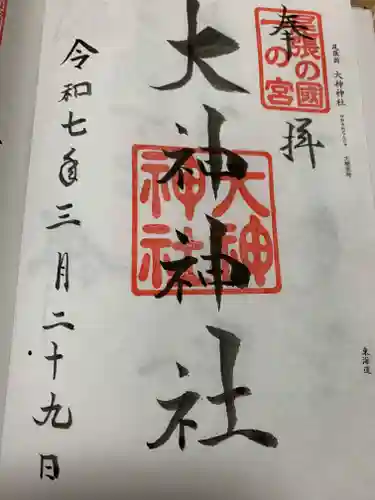 奉拝
尾張の國
一の宮
尾張國 大神神社
大神神社
大神
神社
令和七年三月二十九日
東海道